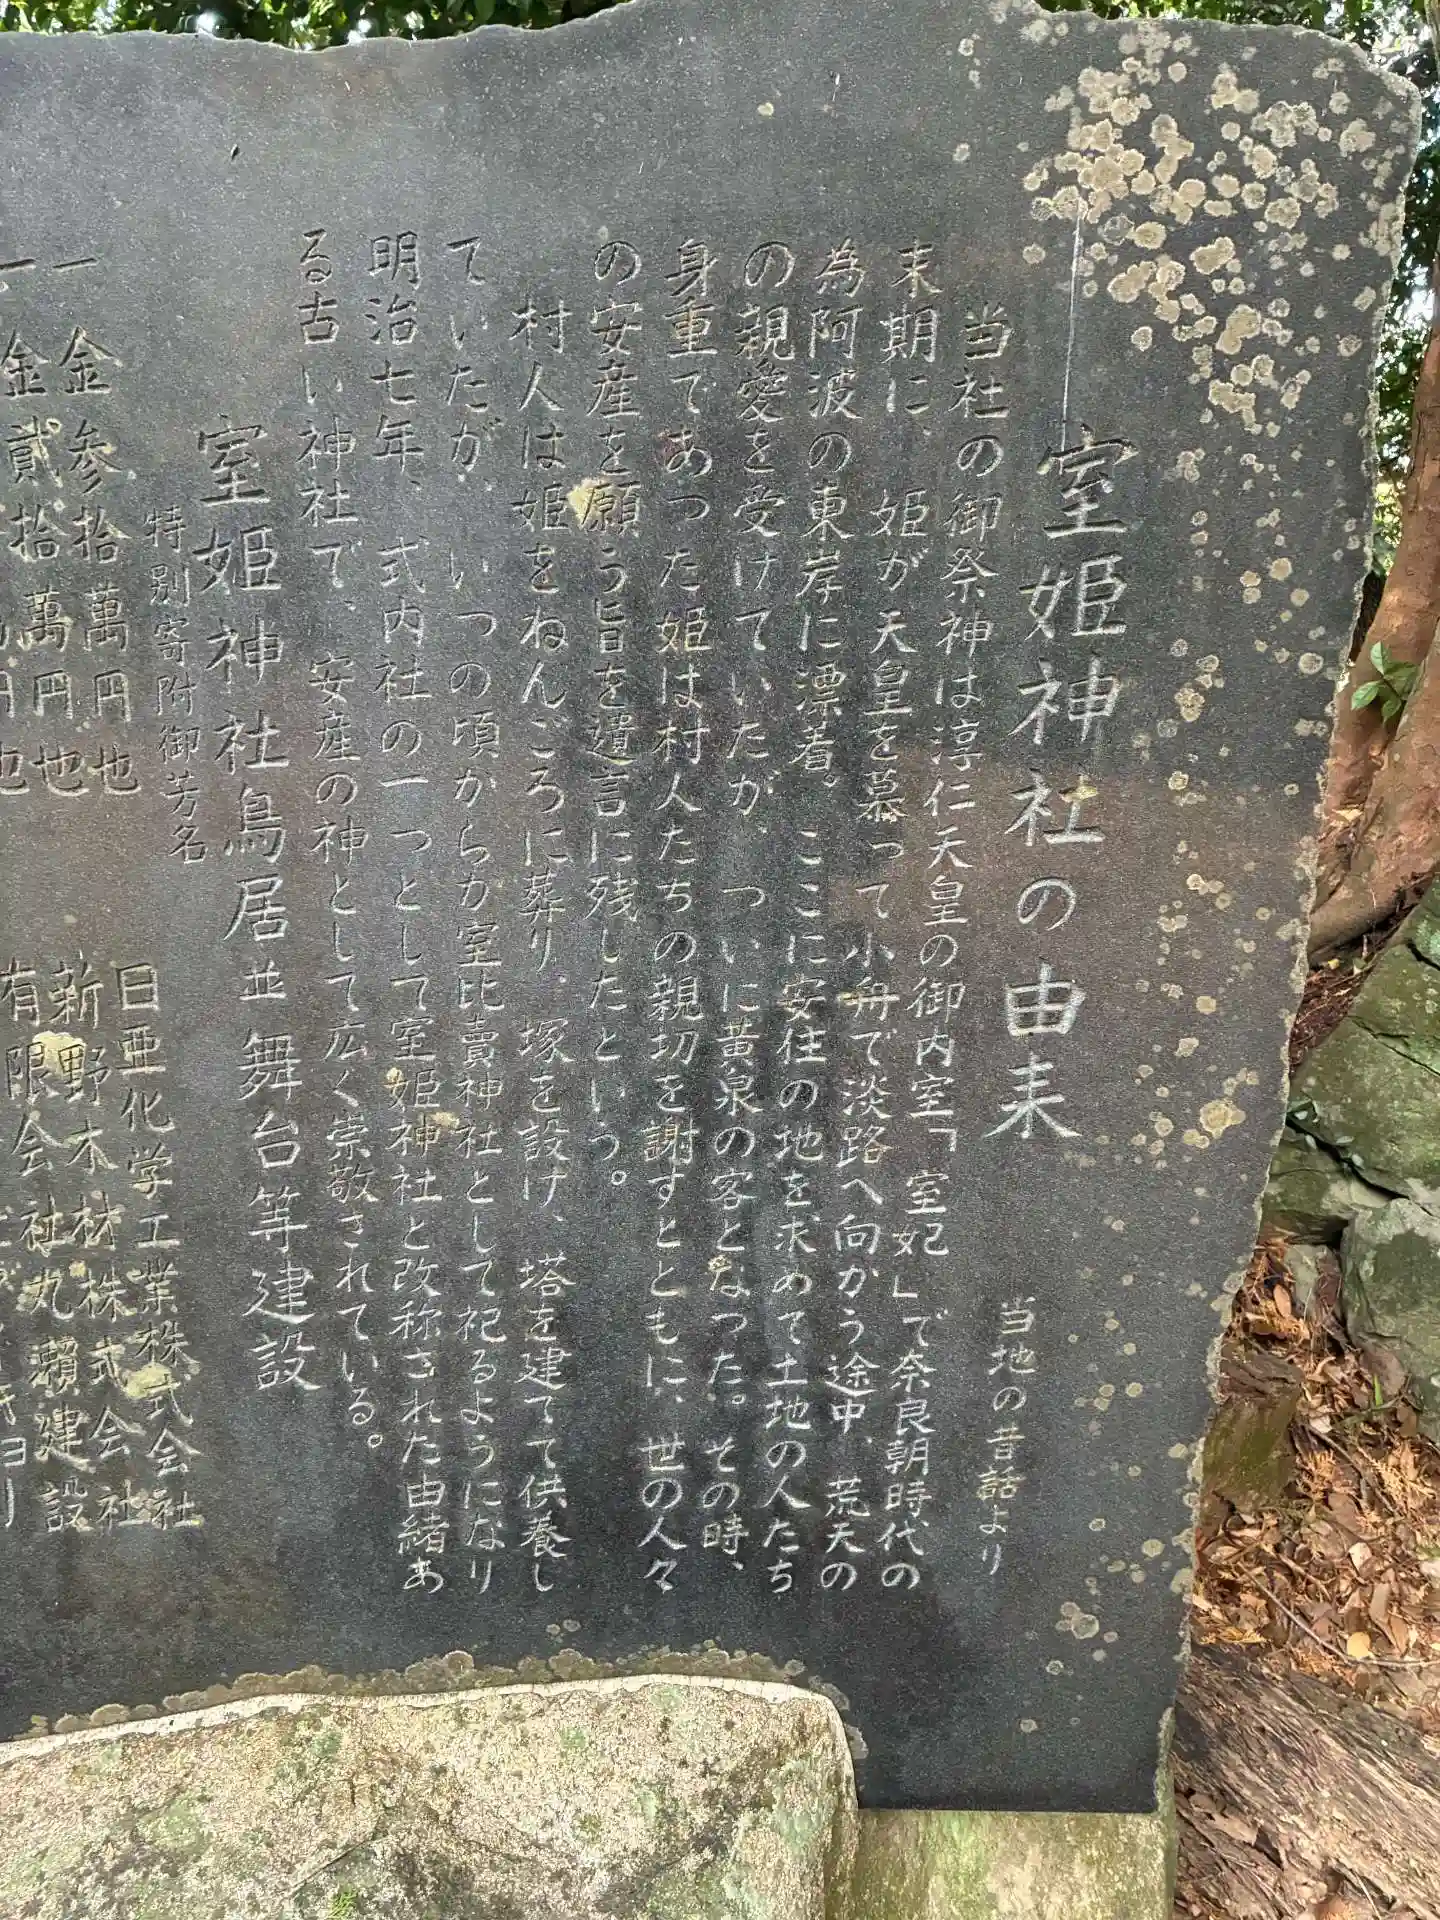 室姫神社の由来
当地の昔話より
当社の御祭神は淳仁天皇の御内室「室妃」で奈良朝時代の
末期に、姫が天皇を慕って小舟で淡路へ向かう途中、荒天の
為阿波の東岸に漂着。ここに安住の地を求めて土地の人たち
の親愛を受けていたが、ついに黄泉の客となった。その時、
身重であった姫は村人たちの親切を謝すとともに、世の人々
の安産を願う旨を遺言に残したという。
村人は姫をねんごろに葬り、塚を設け、塔を建てて供養し
ていたが、いつの頃からか室比賣神社として祀るようになり
明治七年、式内社の一つとして室姫神社と改称された由緒あ
る古い神社で、安産の神として広く崇敬されている。
室姫神社鳥居並舞台等建設
特別寄附御芳名
一金参拾萬円也 日亜化学工業株式会社
一金貮拾萬円也 新野木材株式会社
有限会社丸瀬建設